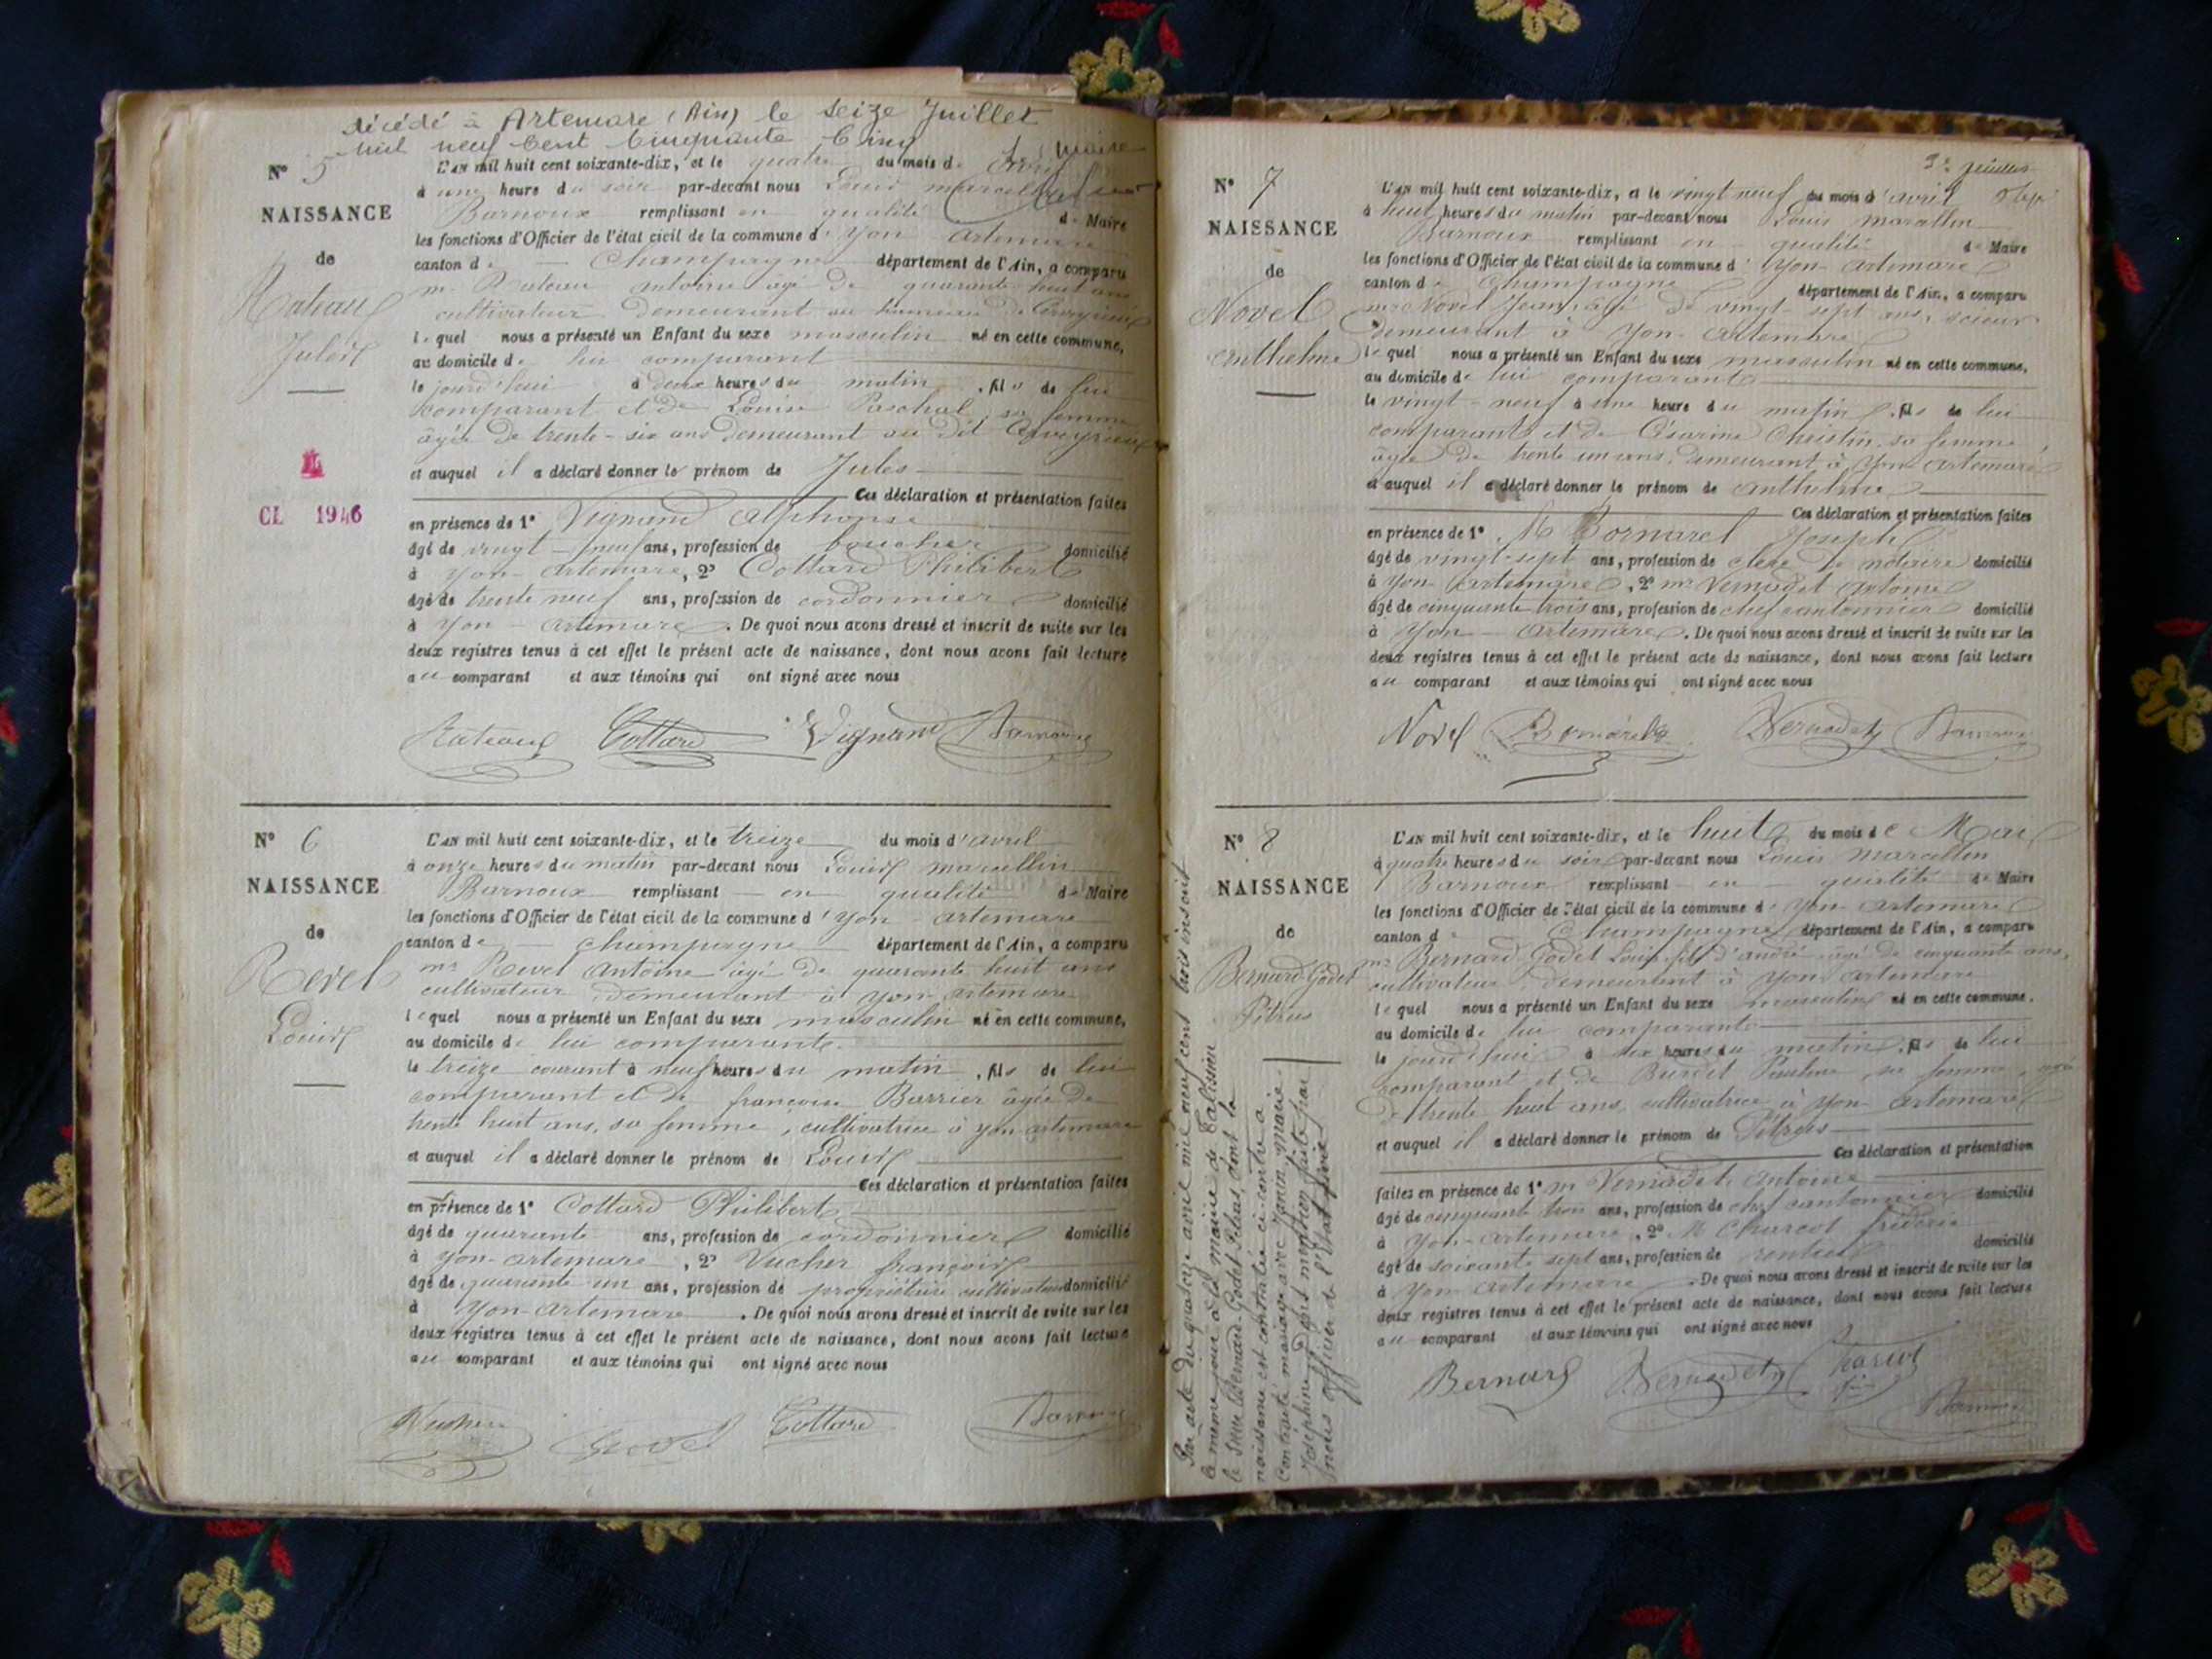 décédé à Artemare (Ain) le seize Juillet
mil neuf cent cinquante cinq
Le Maire
N° 5
NAISSANCE
de
Rateau
Jules
CL 1946
L'AN mil huit cent soixante-dix, et le quatre du mois d'avril
à une heure du soir par-devant nous Louis marcellin
Barnoux remplissant en qualité de Maire
les fonctions d'Officier de l'état civil de la commune d'yon-artemare
canton de Champagne département de l'Ain, a comparu
mr Rateau antoine âgé de quarante huit ans
cultivateur demeurant au hameau de Cerveyrieu
lequel nous a présenté un Enfant du sexe masculin né en cette commune,
au domicile de lui comparant
le jourd'hui à deux heures du matin, fils de lui
comparant et de Louise Paschal, sa femme
âgée de trente-six ans demeurant au dit Cerveyrieu
et auquel il a déclaré donner le prénom de Jules
Ces déclaration et présentation faites
en présence de 1° Vignand alphonse
âgé de vingt-neuf ans, profession de boucher domicilié
à yon-artemare, 2° Cottard Philibert
âgé de trente neuf ans, profession de cordonnier domicilié
à yon-artemare. De quoi nous avons dressé et inscrit de suite sur les
deux registres tenus à cet effet le présent acte de naissance, dont nous avons fait lecture
au comparant et aux témoins qui ont signé avec nous
Rateau Cottard Vignand Barnoux
N° 6
NAISSANCE
de
Revel
Louis
L'AN mil huit cent soixante-dix, et le treize du mois d'avril
à onze heures du matin par-devant nous Louis marcellin
Barnoux remplissant en qualité de Maire
les fonctions d'Officier de l'état civil de la commune d'yon-artemare
canton de Champagne département de l'Ain, a comparu
mr Revel Antoine âgé de quarante huit ans
cultivateur demeurant à yon-artemare
lequel nous a présenté un Enfant du sexe masculin né en cette commune,
au domicile de lui comparant
le treize courant à neuf heures du matin, fils de lui
comparant et de françoise Barrier âgée de
trente huit ans, sa femme, cultivatrice à yon-artemare
et auquel il a déclaré donner le prénom de Louis
Ces déclaration et présentation faites
en présence de 1° Cottard Philibert
âgé de quarante ans, profession de cordonnier domicilié
à yon-artemare, 2° Vucher françois
âgé de quarante un ans, profession de propriétaire cultivateur domicilié
à yon-artemare. De quoi nous avons dressé et inscrit de suite sur les
deux registres tenus à cet effet le présent acte de naissance, dont nous avons fait lecture
au comparant et aux témoins qui ont signé avec nous
Vucher Revel Cottard Barnoux
N° 7
NAISSANCE
de
Novel
anthelme
L'AN mil huit cent soixante-dix, et le vingt neuf du mois d'avril
à huit heures du matin par-devant nous Louis marcellin
Barnoux remplissant en qualité de Maire
les fonctions d'Officier de l'état civil de la commune d'Yon-artemare
canton de Champagne département de l'Ain, a comparu
mr Novel Jean, âgé de vingt-sept ans, scieur
demeurant à Yon-artemare
lequel nous a présenté un Enfant du sexe masculin né en cette commune,
au domicile de lui comparant
le vingt-neuf à une heure du matin, fils de lui
comparant et de Césarine Christin, sa femme
âgée de trente un ans, demeurant à yon-artemare
et auquel il a déclaré donner le prénom de anthelme
Ces déclaration et présentation faites
en présence de 1° M Bornarel Joseph
âgé de vingt-sept ans, profession de clerc de notaire domicilié
à yon-artemare, 2° mr Vernadet Antoine
âgé de cinquante trois ans, profession de chef cantonnier domicilié
à Yon-artemare. De quoi nous avons dressé et inscrit de suite sur les
deux registres tenus à cet effet le présent acte de naissance, dont nous avons fait lecture
au comparant et aux témoins qui ont signé avec nous
Novel Bornarel Vernadet Barnoux
N° 8
NAISSANCE
de
Bernard-Godet
Pétrus
L'AN mil huit cent soixante-dix, et le huit du mois de Mai
à quatre heures du soir par-devant nous Louis marcellin
Barnoux remplissant en qualité de Maire
les fonctions d'Officier de l'état civil de la commune d'yon-artemare
canton de Champagne département de l'Ain, a comparu
mr Bernard-Godet Louis fils d'andré âgé de cinquante ans,
cultivateur, demeurant à yon-artemare
lequel nous a présenté un Enfant du sexe masculin né en cette commune,
au domicile de lui comparant
le jourd'hui à six heures du matin, fils de lui
comparant et de Burdet Pauline, sa femme,
de trente huit ans, cultivatrice à yon-artemare
et auquel il a déclaré donner le prénom de Pétrus
Ces déclaration et présentation
faites en présence de 1° m Vernadet antoine
âgé de cinquante trois ans, profession de chef cantonnier domicilié
à Yon-artemare, 2° M Charcot frédéric
âgé de soixante sept ans, profession de rentier domicilié
à yon-artemare. De quoi nous avons dressé et inscrit de suite sur les
deux registres tenus à cet effet le présent acte de naissance, dont nous avons fait lecture
au comparant et aux témoins qui ont signé avec nous
Bernard Vernadet Charcot Barnoux
Par acte du quatorze avril mil neuf cent trois inscrit
le même jour à la mairie de Talissieu
le Sieur Bernard-Godet Pétrus, dont la
naissance est constatée ci-contre a
contracté mariage avec Janin marie
Joséphine. Dont mention faite par
nous officier de l'Etat civil